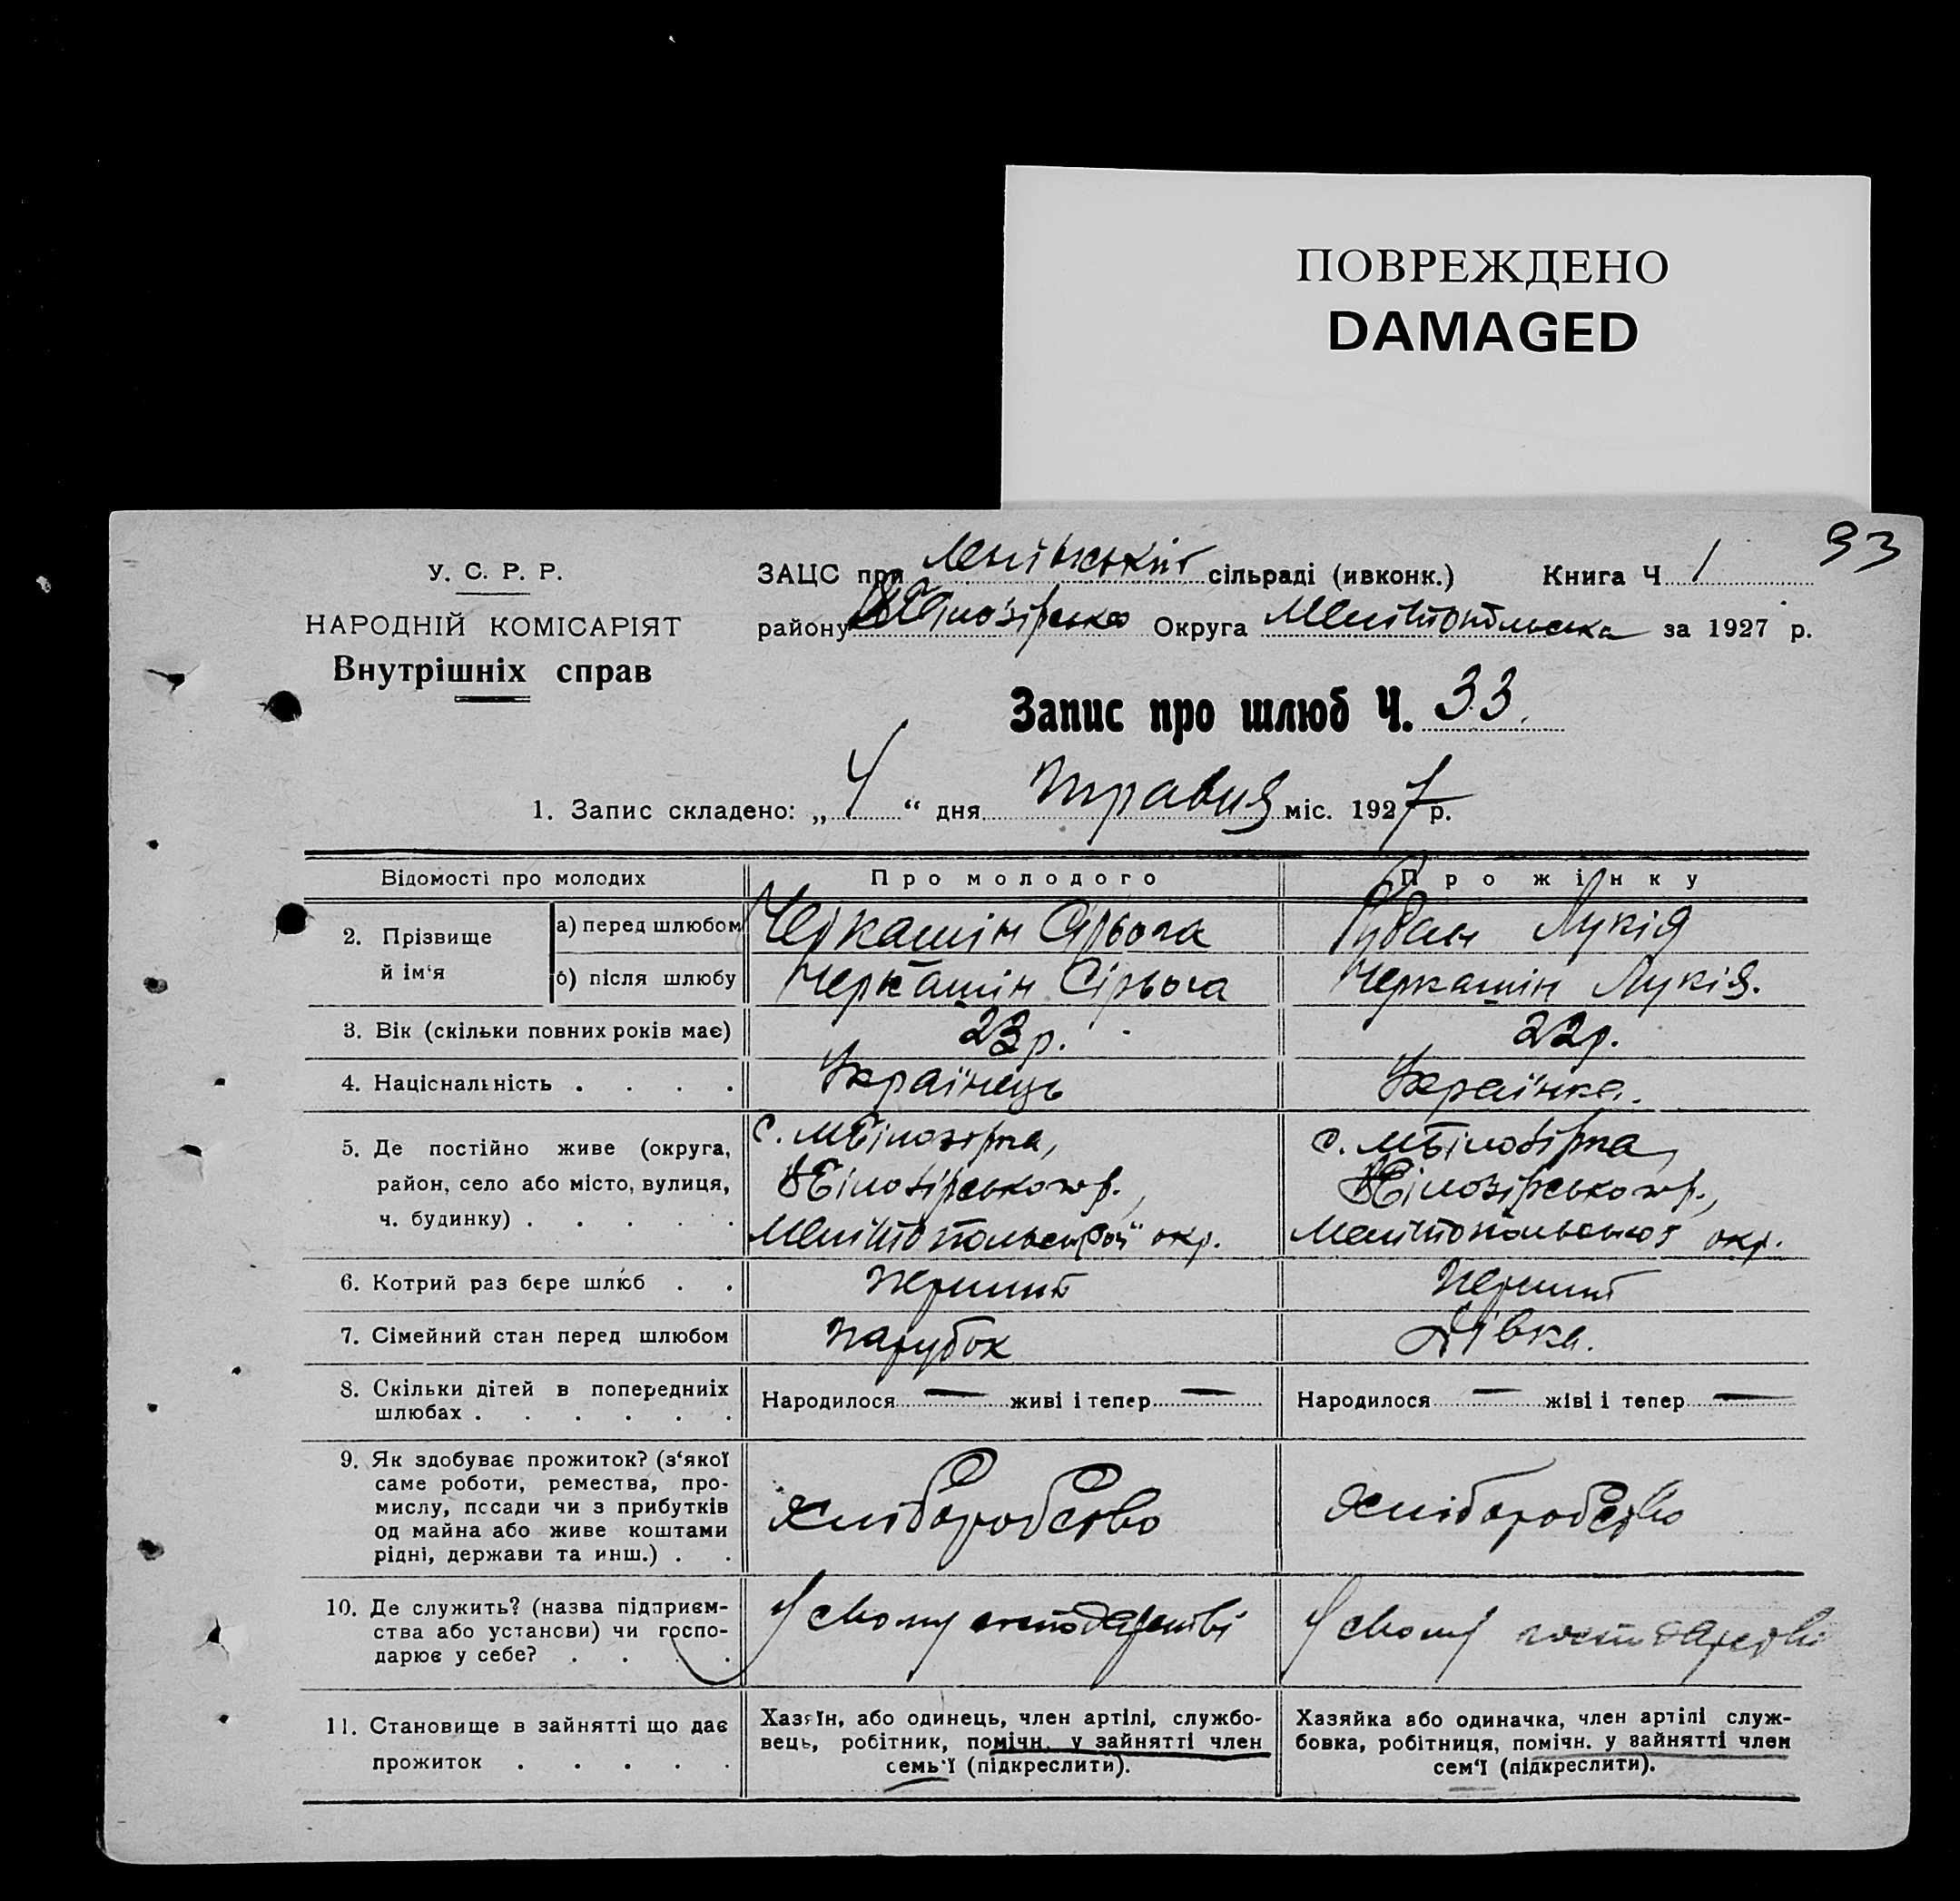 ПОВРЕЖДЕНО
DAMAGED
33
У. С. Р. Р.
НАРОДНІЙ КОМІСАРІЯТ
Внутрішніх справ
ЗАЦС при сільраді (ивконк.) Книга Ч 1
району Білозірсько Округа Мелітопольська за 1927 р.
Запис про шлюб Ч. 33.
1. Запис складено: „ 4 “ дня травня міс. 1927 р.
Відомості про молодих Про молодого Про жінку
2. Прізвище й ім‘я
а) перед шлюбом Черкашін Сірьога Рубан Лукія
б) після шлюбу Черкашін Сірьога Черкашін Лукія.
3. Вік (скільки повних років має) 23 р. 22 р.
4. Національність . . . . Українець Українка.
5. Де постійно живе (округа, с. МБілозірка, с. МБілозірка,
район, село або місто, вулиця, ВБілозірського р., ВБілозірського р.,
ч. будинку) . . . . . Мелітопольської окр. Мелітопольської окр.
6. Котрий раз бере шлюб . . Перший Перший
7. Сімейний стан перед шлюбом Парубок Дівка.
8. Скільки дітей в попередниіх
шлюбах . . . . . . Народилося — живі і тепер — Народилося — жіві і тепер —
9. Як здобуває прожиток? (з‘якої
саме роботи, ремества, про-
мислу, посади чи з прибутків
од майна або живе коштами
рідні, держави та инш.) . . Хліборобство Хліборобство
10. Де служить? (назва підприєм-
ства або установи) чи госпо-
дарює у себе? . . . . У свому господарстві У свому господарстві
11. Становище в зайнятті що дає
прожиток . . . . .
Хазяїн, або одинець, член артілі, службо-
вець, робітник, помічн. у зайнятті член
семь‘ї (підкреслити).
Хазяйка або одиначка, член артілі служ-
бовка, робітниця, помічн. у зайнятті член
сем‘ї (підкреслити).